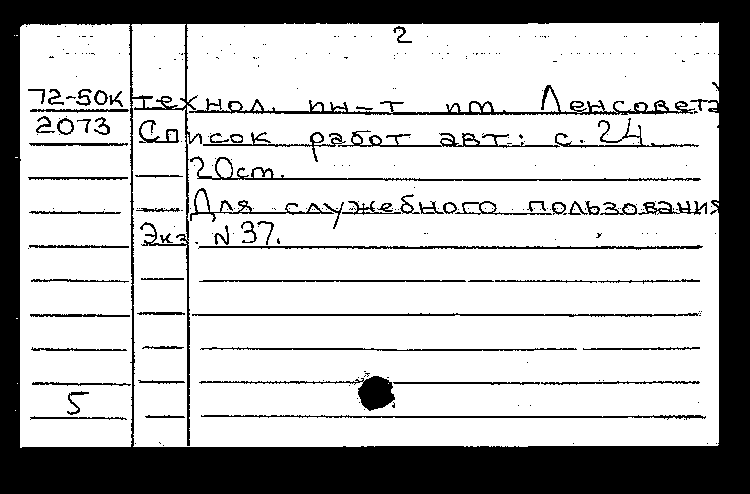 2
72-50к технол. ин-т им. Ленсовета
2073 Список работ авт: с. 24.
20ст.
Для служебного пользования
Экз. N 37.
5